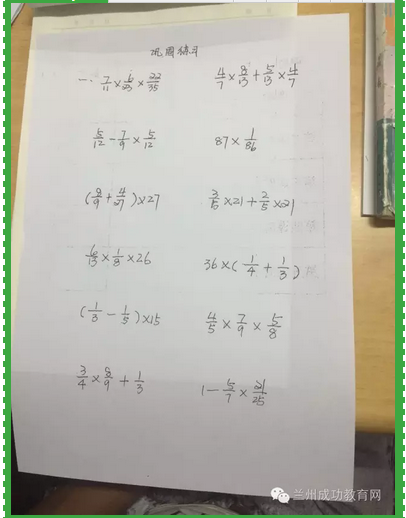 巩固练习
一. 7/11 × 6/23 × 22/35    4/7 × 8/13 + 5/13 × 4/7
5/12 - 7/9 × 5/12    87 × 1/86
(8/9 + 4/27) × 27    3/5 × 21 + 2/5 × 21
6/13 × 1/8 × 26    36 × (1/4 + 1/3)
(1/3 - 1/5) × 15    4/5 × 7/9 × 5/8
3/4 × 8/9 + 1/3    1 - 5/7 × 21/25
兰州成功教育网